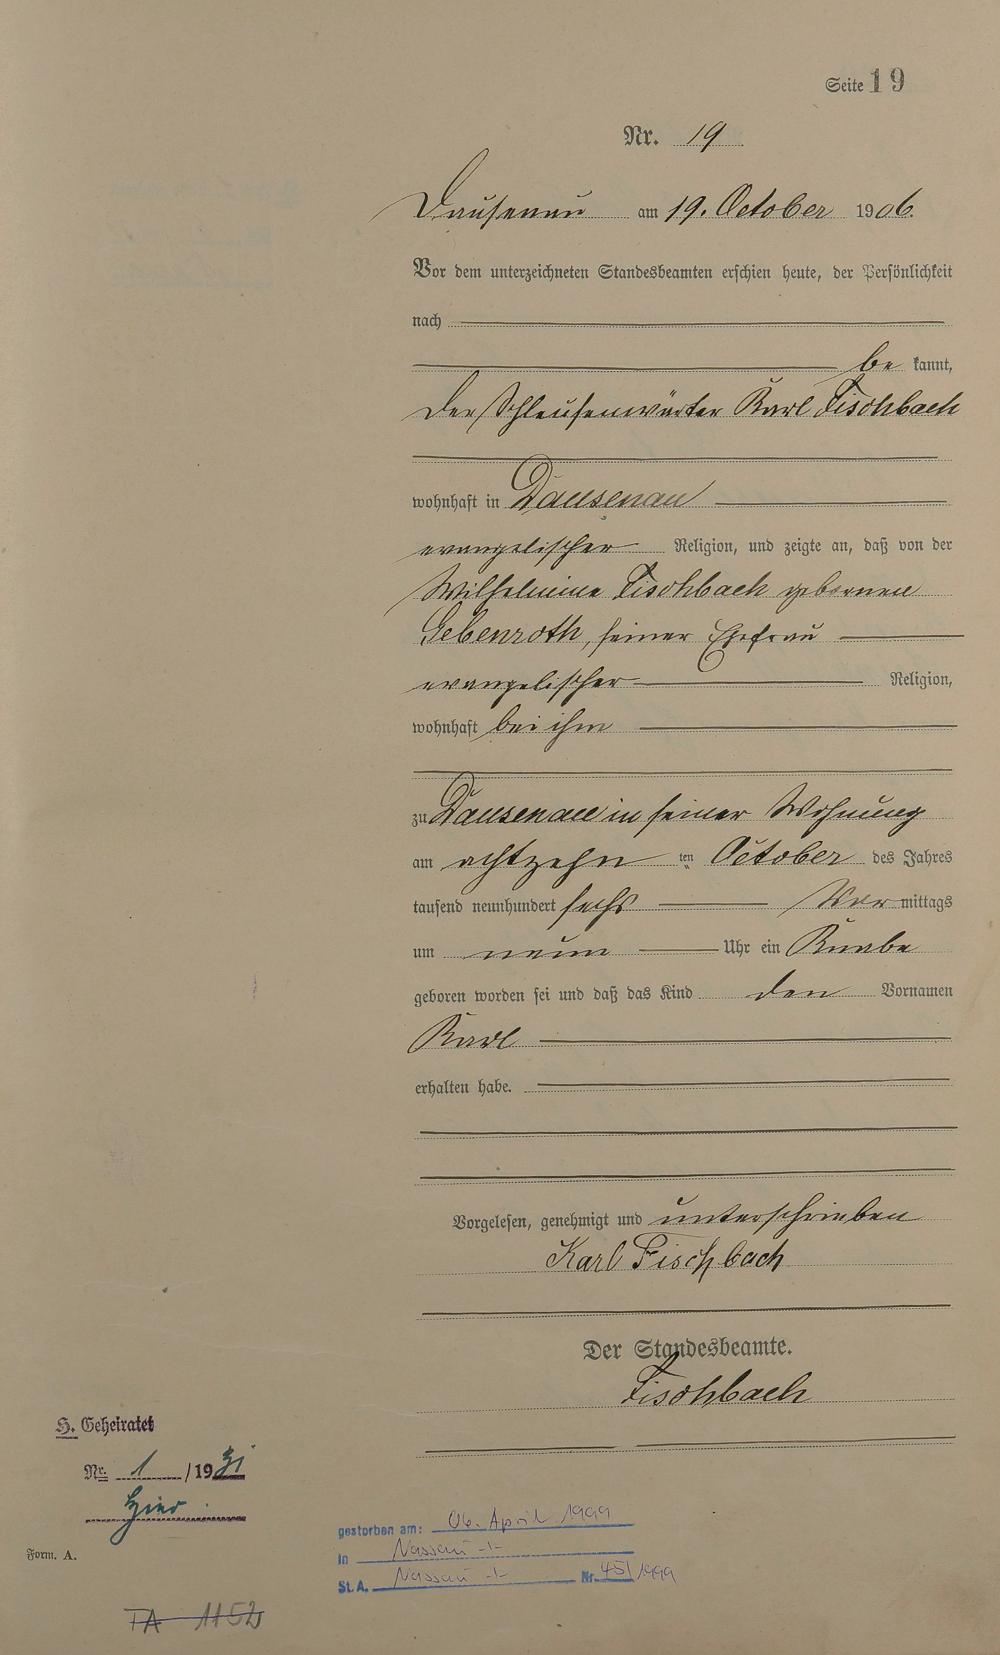 Seite 19
Nr. 19
Dausenau am 19. October 1906.
Vor dem unterzeichneten Standesbeamten erschien heute, der Persönlichkeit
nach
be kannt,
der Schleusenwärter Karl Fischbach
wohnhaft in Dausenau
evangelischer Religion, und zeigte an, daß von der
Wilhelmine Fischbach gebornen
Gebenroth, seiner Ehefrau
evangelischer Religion,
wohnhaft bei ihm
zu Dausenau in seiner Wohnung
am achtzehn ten October des Jahres
tausend neunhundert sechs Vor mittags
um neun Uhr ein Knabe
geboren worden sei und daß das Kind den Vornamen
Karl
erhalten habe.
Vorgelesen, genehmigt und unterschrieben
Karl Fischbach
Der Standesbeamte.
Fischbach
H. Geheiratet
Nr. 1 / 1931
hier.
Form. A.
gestorben am: 06. April 1999
in Nassau -/-
St. A. Nassau -/- Nr. 45/1999
TA 1152